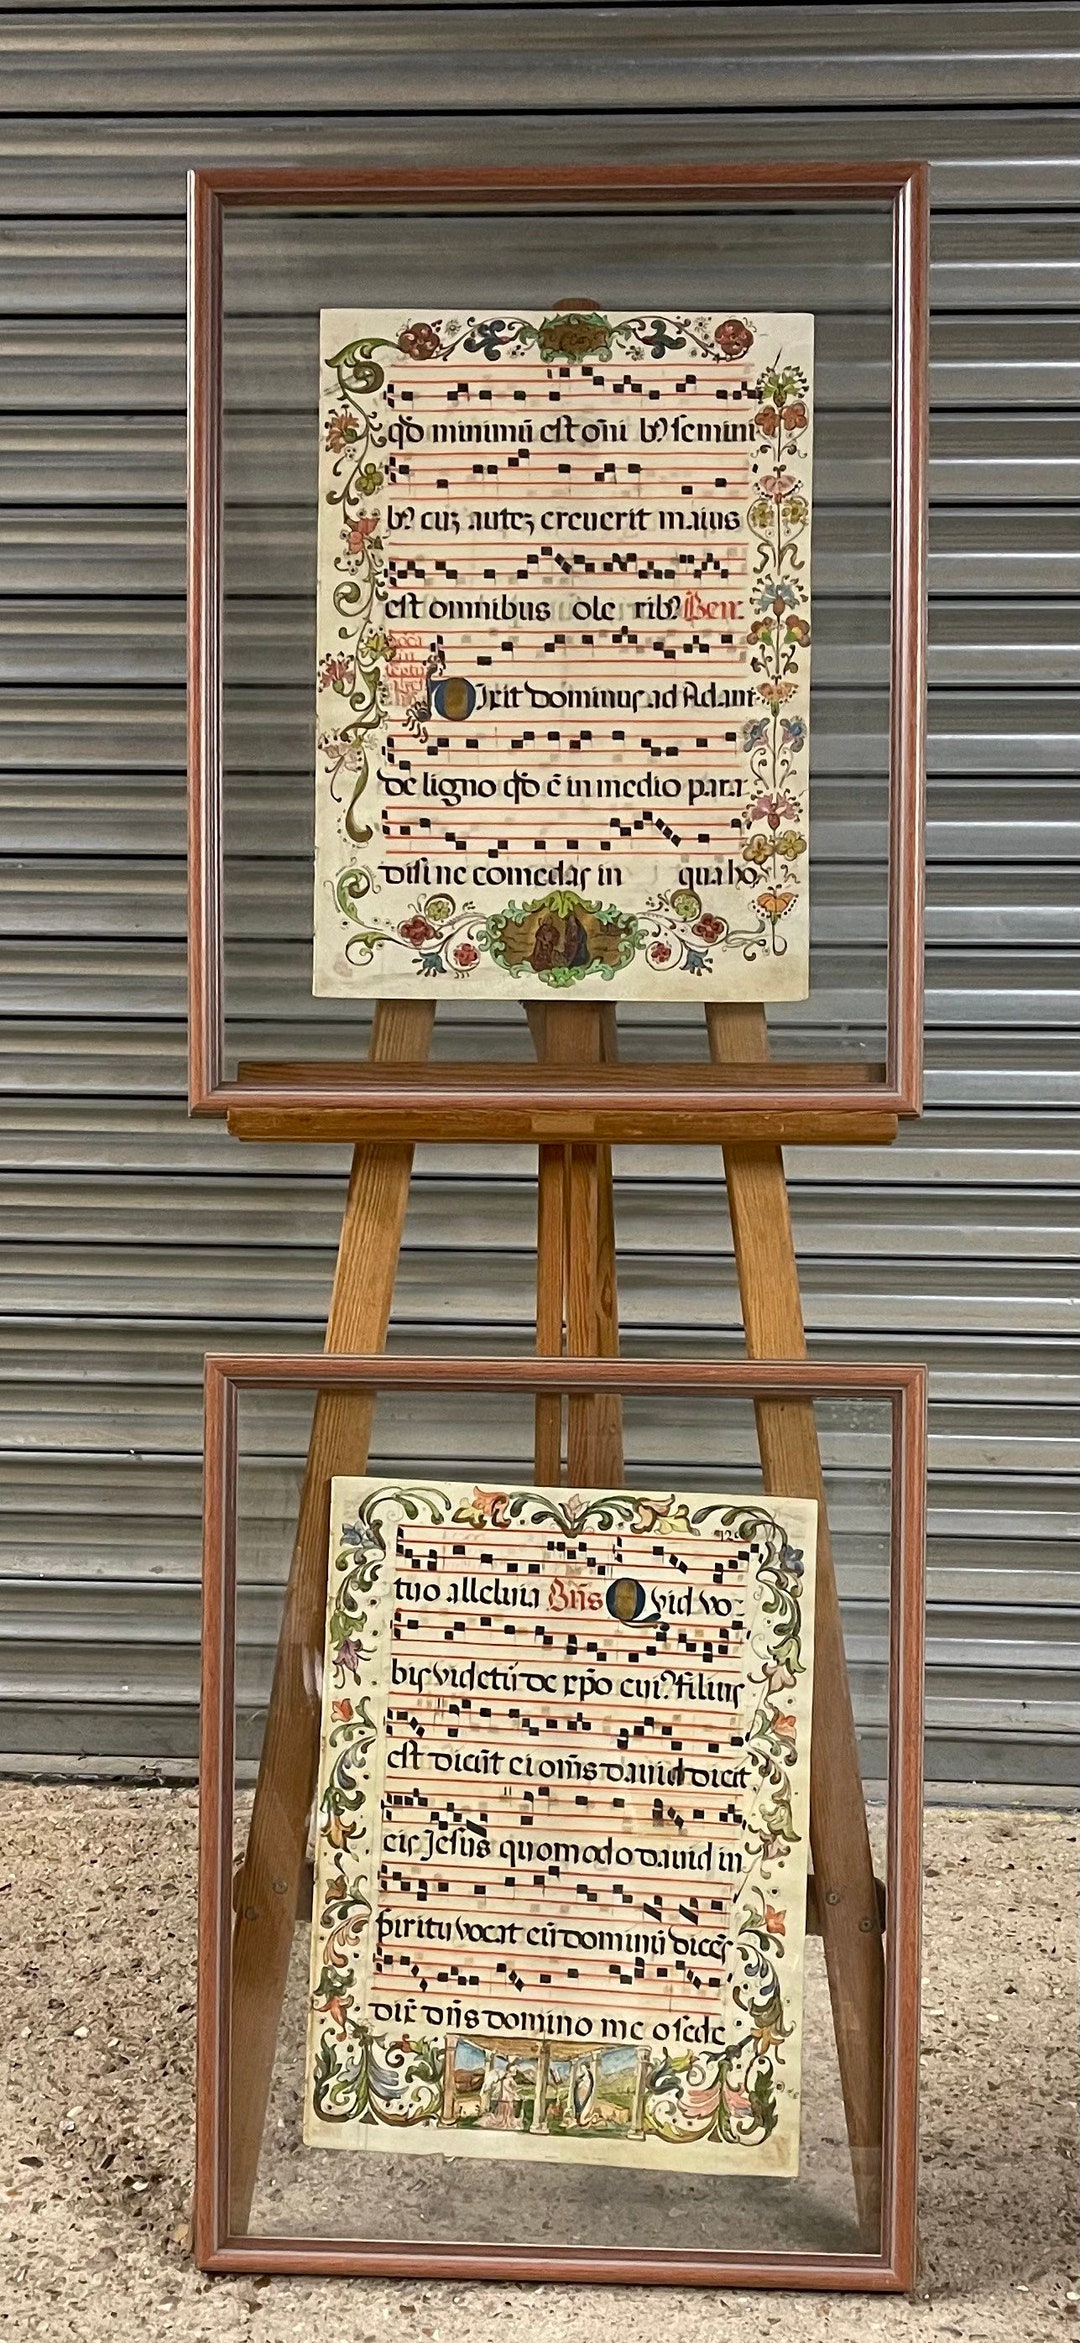 qđ minimũ est oñi bꝰ semini
bꝰ cuȝ auteȝ creuerit maius
est omnibus ole ribꝰ Ben.
Dixit dominus ad Adam
de ligno qđ ẽ in medio para
disi ne comedas in qua ho
tuo alleluia Bñs Qvid vo-
bis videtũ de xp̃o cuiꝰ filius
est dicũt ei oм̃s dauid dicit
eis Jesus quomodo dauid in
spiritu vocat eũ dominũ dicẽs
dix̃ dñs domino meo sede